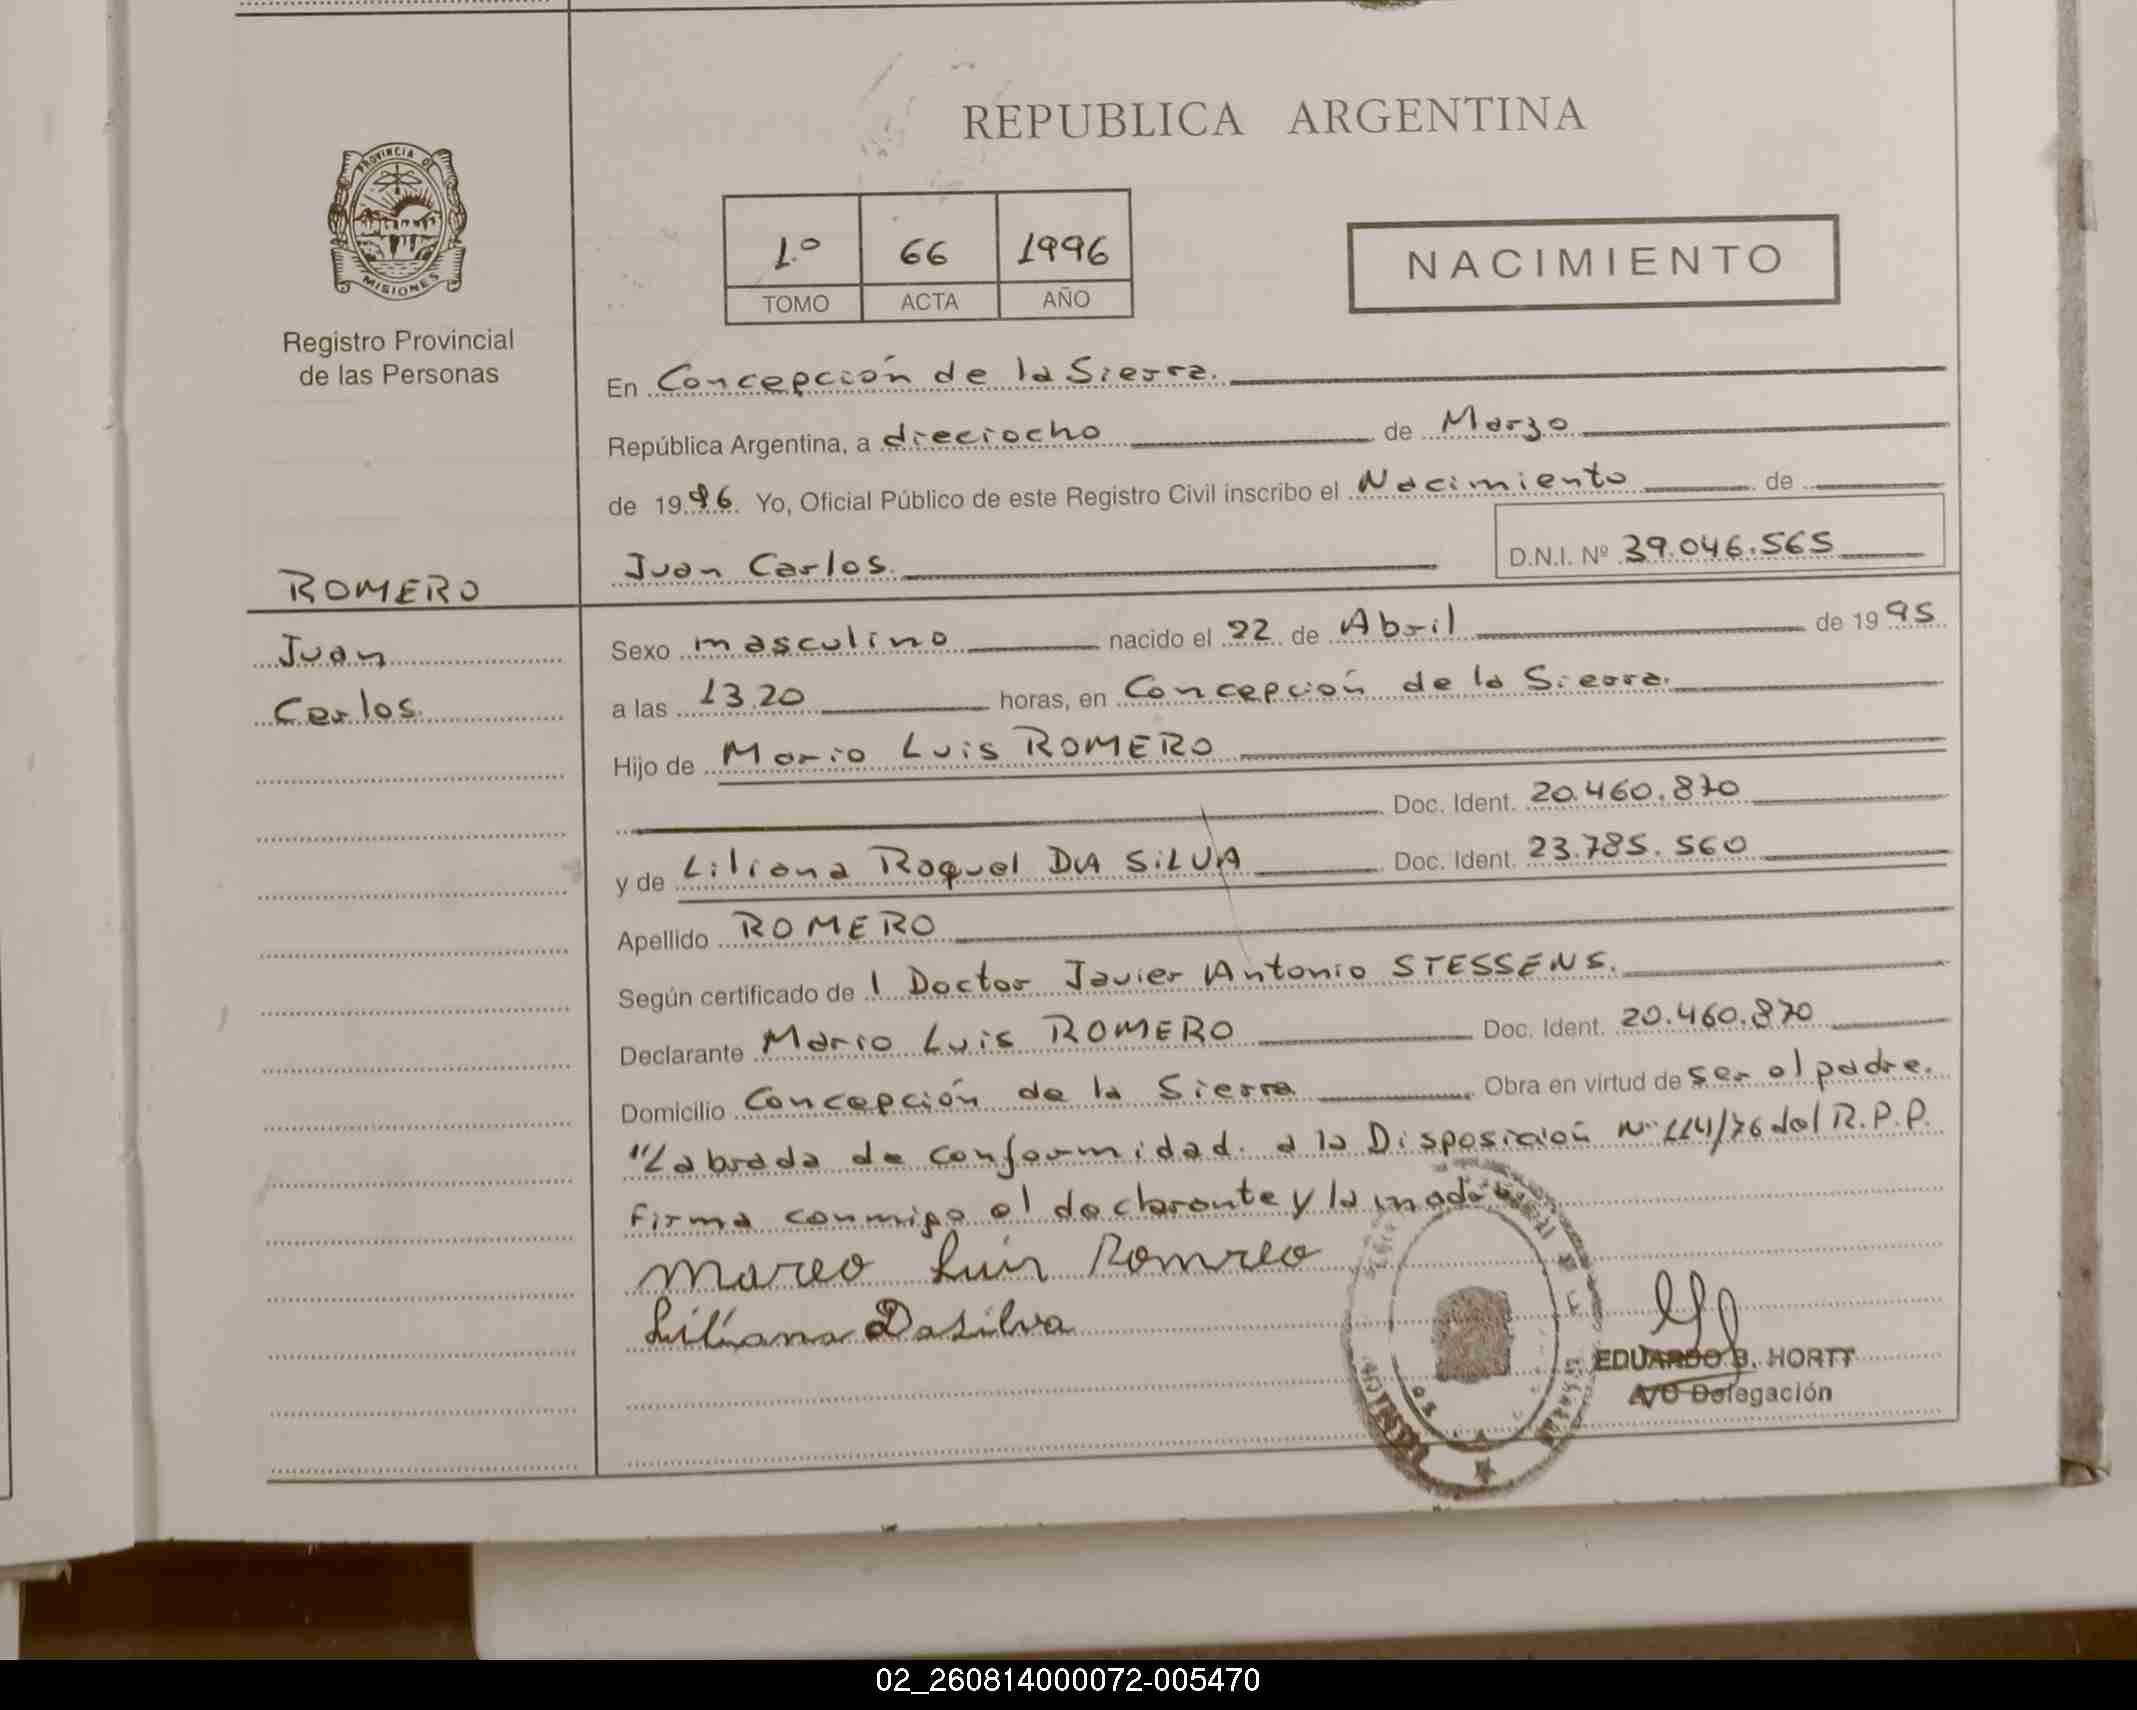 REPUBLICA ARGENTINA
PROVINCIA DE
MISIONES
Registro Provincial
de las Personas
1º 66 1996
TOMO ACTA AÑO
NACIMIENTO
En Concepción de la Sierra.
República Argentina, a dieciocho de Marzo
de 1996 Yo, Oficial Público de este Registro Civil inscribo el Nacimiento de
Juan Carlos. D.N.I. Nº 39.046.565
ROMERO
Juan
Carlos.
Sexo masculino nacido el 22 de Abril de 1995
a las 13.20 horas, en Concepción de la Sierra.
Hijo de Mario Luis ROMERO
Doc. Ident. 20.460.870
y de Liliana Raquel DA SILVA Doc. Ident. 23.785.560
Apellido ROMERO
Según certificado de l Doctor Javier Antonio STESSENS.
Declarante Mario Luis ROMERO Doc. Ident. 20.460.870
Domicilio Concepción de la Sierra Obra en virtud de ser el padre.
"Labrada de conformidad. a la Disposición Nº 114/76 del R.P.P.
Firma conmigo el declarante y la madre
Mareo Luis Romreo
Liliana Dasilva
EDUARDO B. HORTT
A/C Delegación
02_260814000072-005470